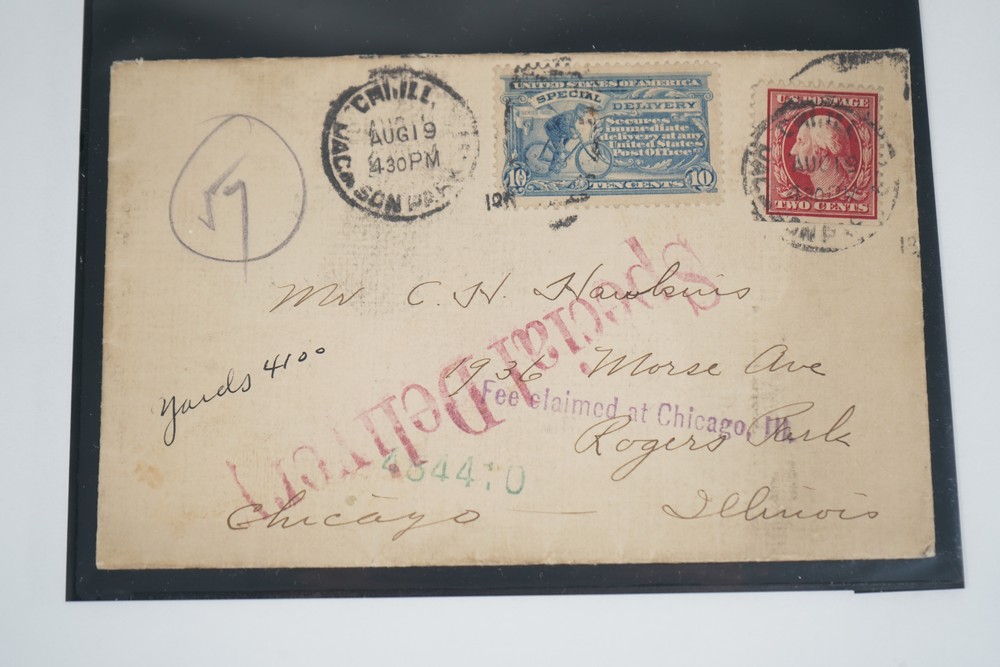 CHI. ILL.
AUG 19
4 30 PM
UNITED STATES OF AMERICA
SPECIAL DELIVERY
Secures
immediate
delivery at any
United States
Post Office
10 TEN CENTS 10
U.S. POSTAGE
TWO CENTS
AUG 19
Mr C. H. Hawkins
1936 Morse Ave
Rogers Park
Chicago — Illinois
yards 4100
Special Delivery
Fee claimed at Chicago, Ill.